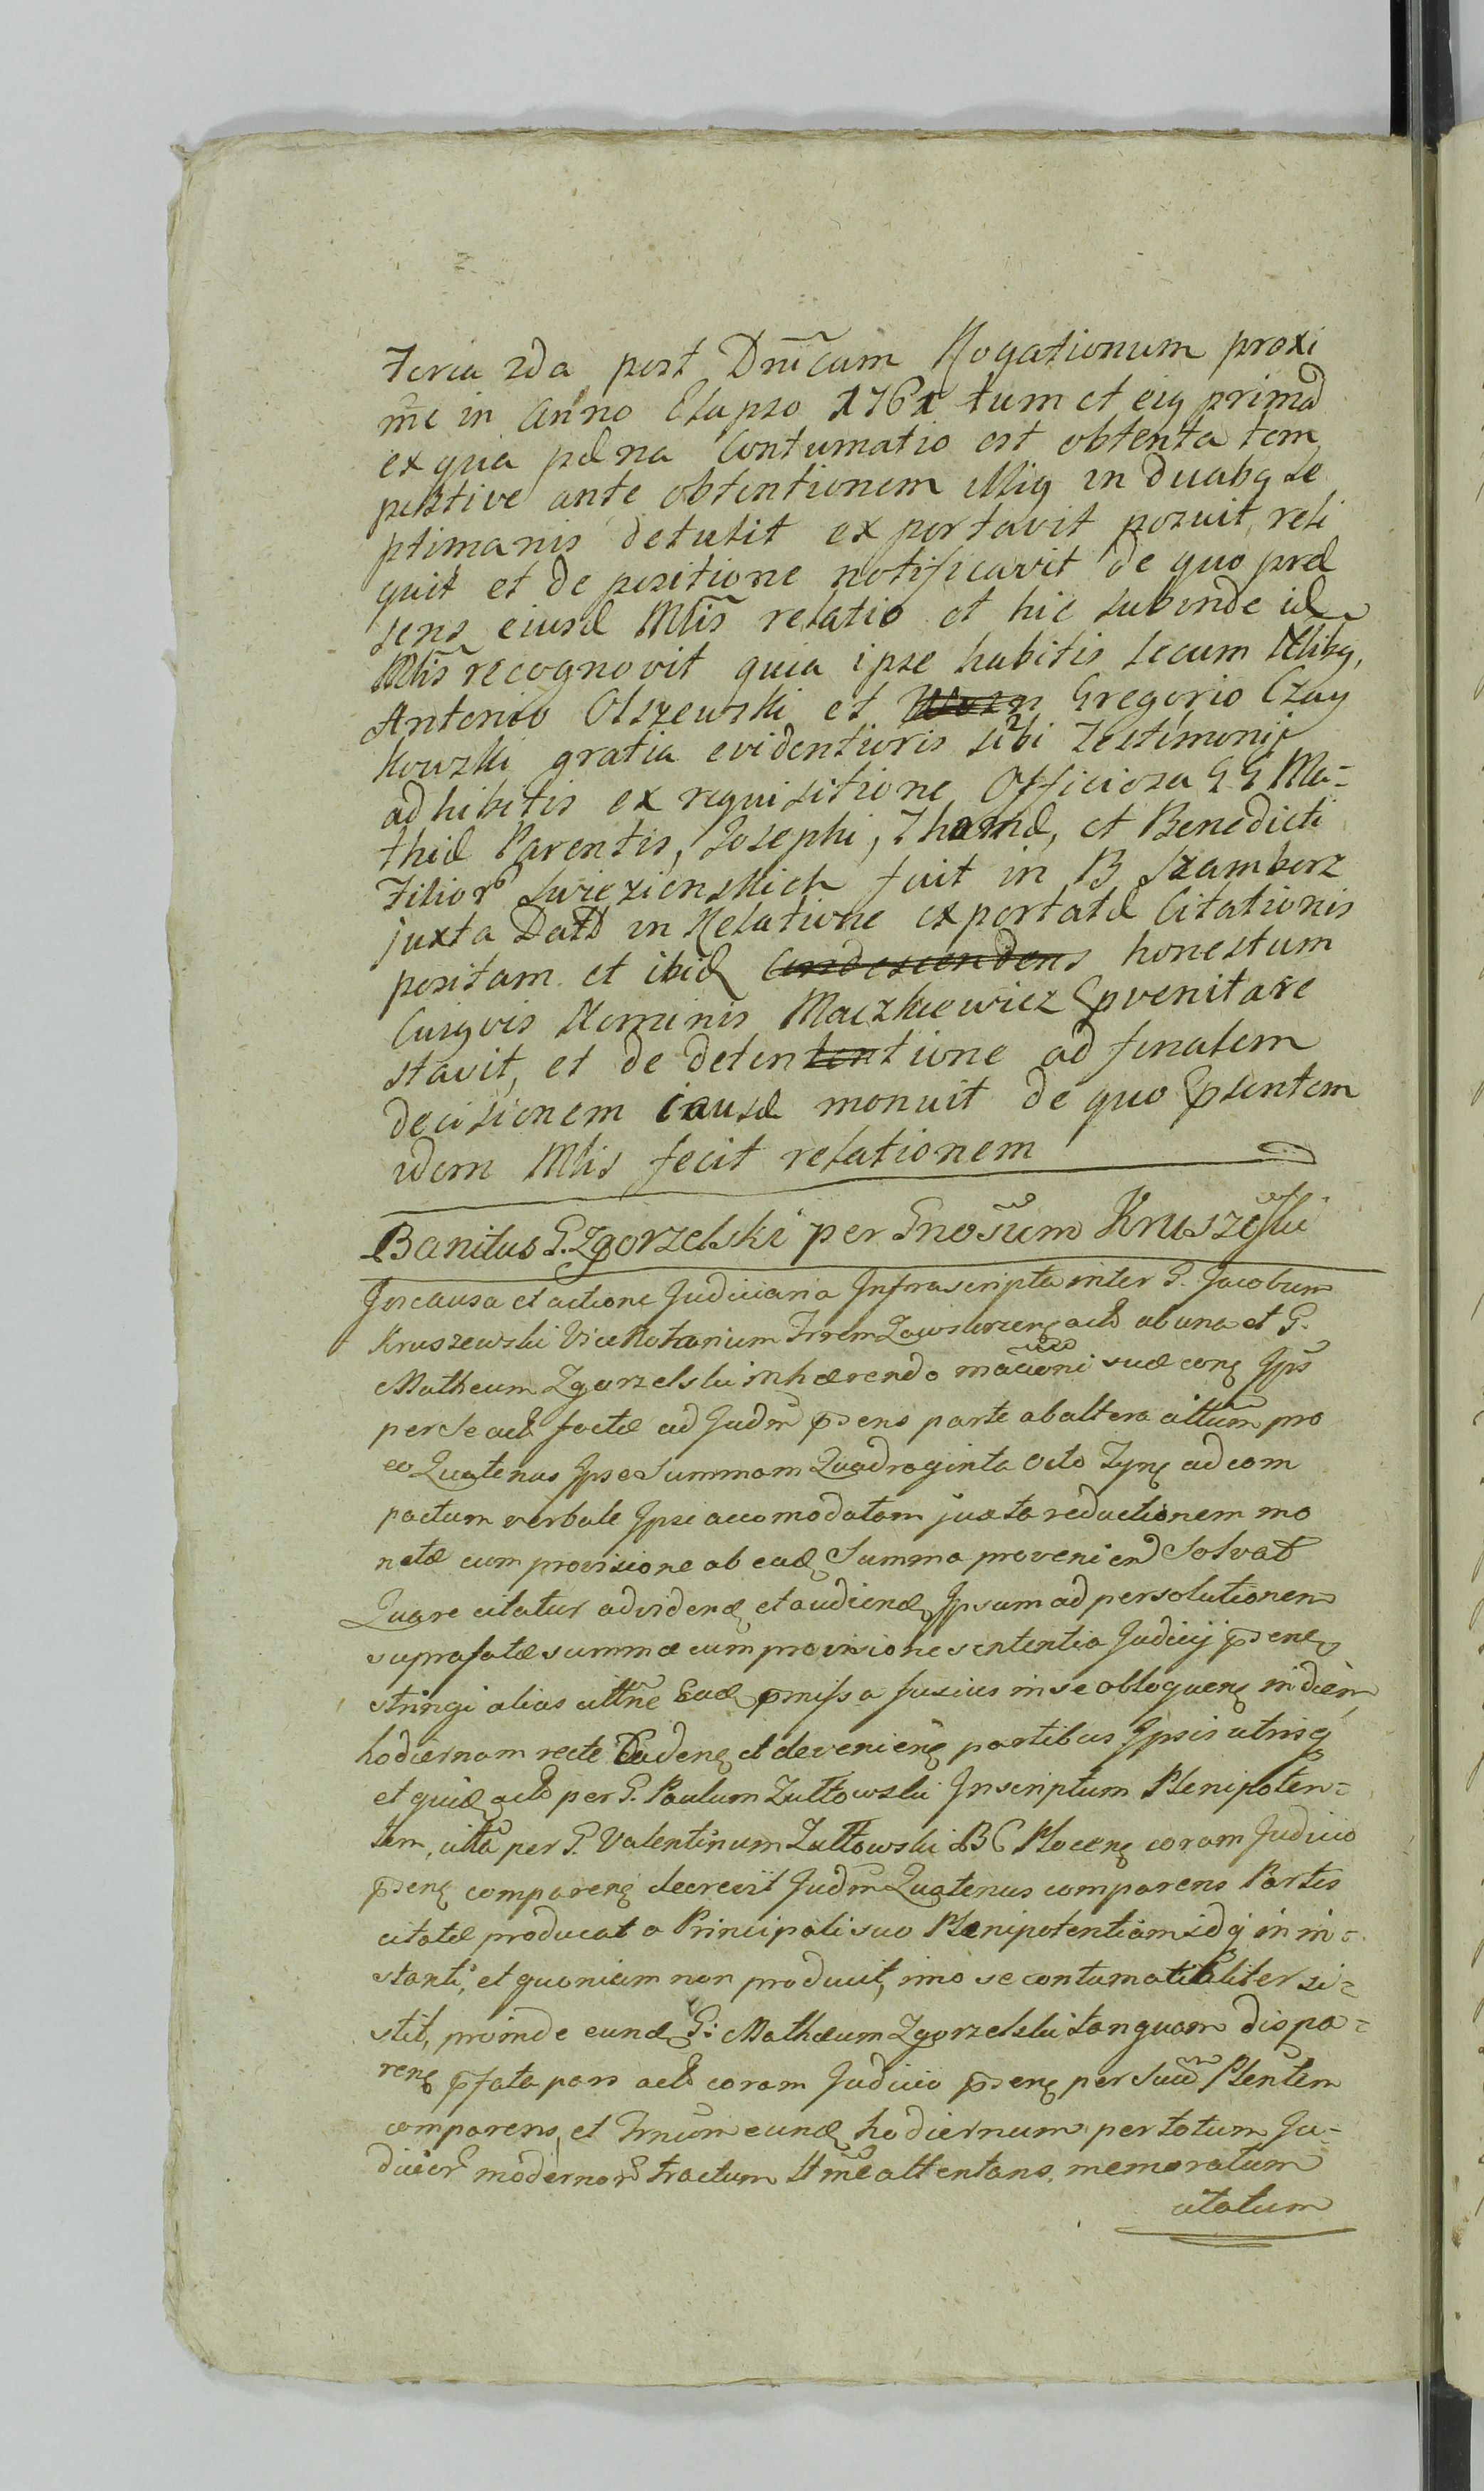 Feria 2da post Dnĩcam Rogationum proxi
mẽ in Anno Elapso 1761 tum et eiq primæ
ex quia pæna Contumatio est obtenta tem
pestive ante obtentionem illiq in duabq se
ptimanis detulit exportavit posuit, reli
quit et de positione notificavit de quo præ
sens eiusd Mlis relatio et hic subinde id
Mlis recognovit quia ipse habitis secum Nlibq,
Antonio Olszewski et Gregorio Czay
kowski gratia evidentioris sibi Testimonij
adhibitis ex requisitione Officiosa GG Ma-
thiæ Parentis, Josephi, Thomæ, et Benedicti
Filiorũ Swiezienskich fuit in B Szamborz
juxta Datã in Relatione exportatæ Citationis
positam et ibid Condescendens honestum
Cuiqvis Nominis Maczkiewicz Epvenit are
stavit, et de detententione ad finalem
decisionem Causæ monuit de quo psentem
idem Mlis fecit relationem
Banitus G. Zgorzelski per Gnosum Kruszeski
In causa et actione Judiciaria Infrascripta inter G. Jacobum
Kruszewski ViceNotarium Trrem Zawskrzens actõ ab una et G.
Matheum Zgorzelski inhærendo mãcioni suæ coñ Ips
per se actõ factæ ad Judm psens parte ab altera cittum pro
eo Quatenus Ipse Summam Quadraginta Octo Tyn ad com
pactum verbale Ipsi accomodatam juxta reductionem mo
netæ cum provisione ab ead Summa provenien Solvat
Quare citatur ad videnд et audiend Ipsum ad persolutionem
suprafatæ summæ cum provisione sententia Judicij psen
stringi alias cittne Ead pmissa fusius in se obloquen in diem
hodiernam recte Caden et devenien partibus Ipsis utrisq
et quid actõ per G. Paulum Zultowski Inscriptum Plenipoten=
tem, citta per G. Valentinum Zultowski BC Plocen coram Judicio
psen comparen decrevit Judm Quatenus comparens Partis
citatæ producat a Principali suo Plenipotentiam idq in in=
stanti, et quoniam non produxit, imo se contumatialiter si=
stit, proinde eund G: Mathæum Zgorzelski tanquam dispa=
ren pfata pars actõ coram Judicio psen per Suũ Plentem
comparens, et Trnum eund hodiernum per totum Ju=
dicior modernor tractum lltme attentans, memoratum
citatum